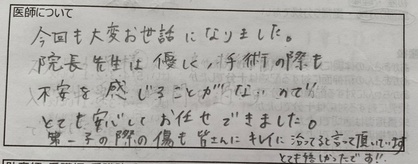 医師について
今回も大変お世話になりました。
院長先生は優しく、手術の際も
不安を感じることがないので
とても安心してお任せできました。
第一子の際の傷も皆さんにキレイに治ってると言って頂いています
とても嬉しかったです!!